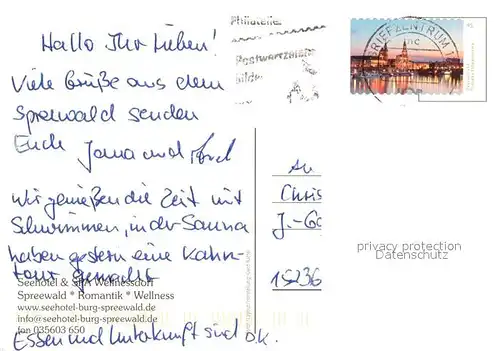 Hallo Ihr Lieben!
Viele Grüße aus dem
Spreewald senden
Euch Jana und
Wir genießen die Zeit mit
Schwimmen, in der Sauna
haben gestern eine Kahn-
tour gemacht
Essen und Unterkunft sind o.k.
Seehotel & SPA Wellnessdorf
Spreewald * Romantik * Wellness
www.seehotel-burg-spreewald.de
info@seehotel-burg-spreewald.de
fon 035603 650
Philatelie.
Postwertzeichen
BRIEFZENTRUM 1
An
Chris
J.-Go
15236
privacy protection
Datenschutz